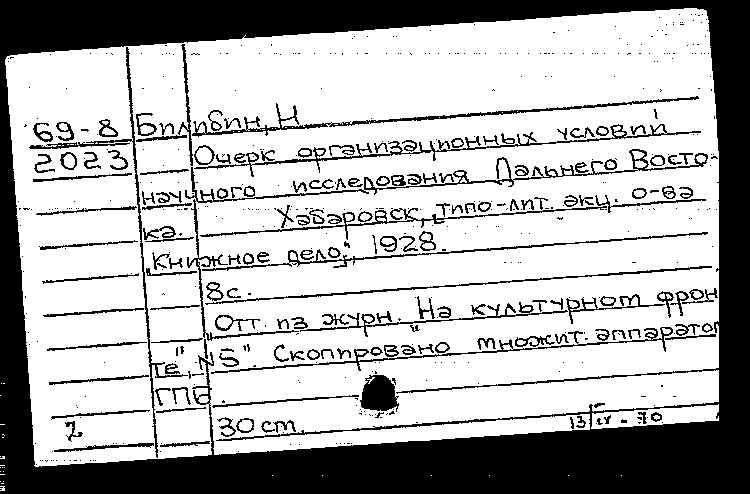 69-8 Билибин, Н
2023 Очерк организационных условий
научного исследования Дальнего Восто-
ка. Хабаровск, типо-лит. акц. о-ва
„Книжное дело", 1928.
8с.
"Отт. из журн. "На культурном фрон
те", N5". Скопировано множит. аппаратом
ГПБ.
30 cm.